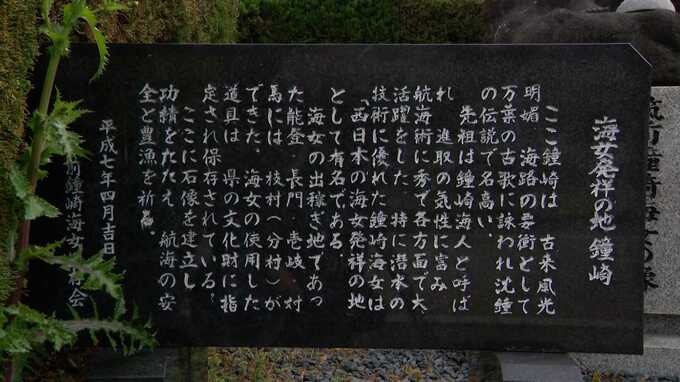 海女発祥の地 鐘崎
ここ鐘崎は 古来風光
明媚、海路の要衝として
万葉の古歌に詠われ沈鐘
の伝説で名高い
先祖は鐘崎海人と呼ば
れ 進取の気性に富み
航海術に秀で各方面で大
活躍をした 特に潜水の
技術に優れた鐘崎海女は
「西日本の海女発祥の地」
として有名である。
海女の出稼ぎ地であっ
た能登・長門・壱岐・対
馬には 枝村(分村)が
できた。海女の使用した
道具は 県の文化財に指
定され保存されている。
ここに石像を建立し
功績をたたえ 航海の安
全と豊漁を祈る。
平成七年四月吉日
前鐘崎海女 存会
筑前鐘崎海女の像